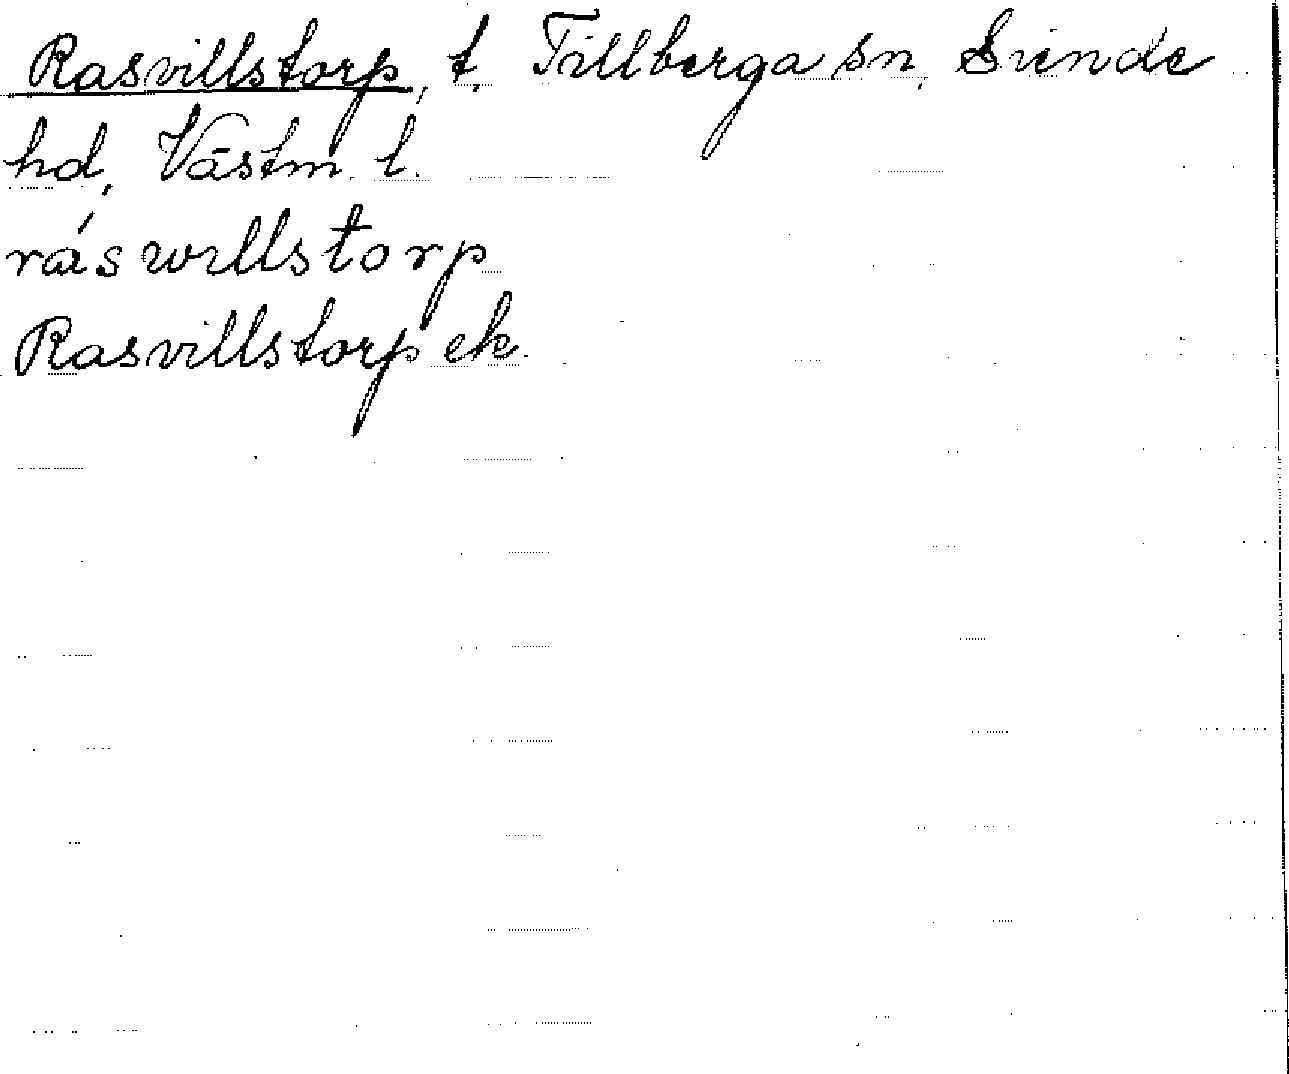 Rasvillstorp, t. Tillberga sn, Siende
hd, Västm. l.
rás willstorp
Rasvillstorp ek.